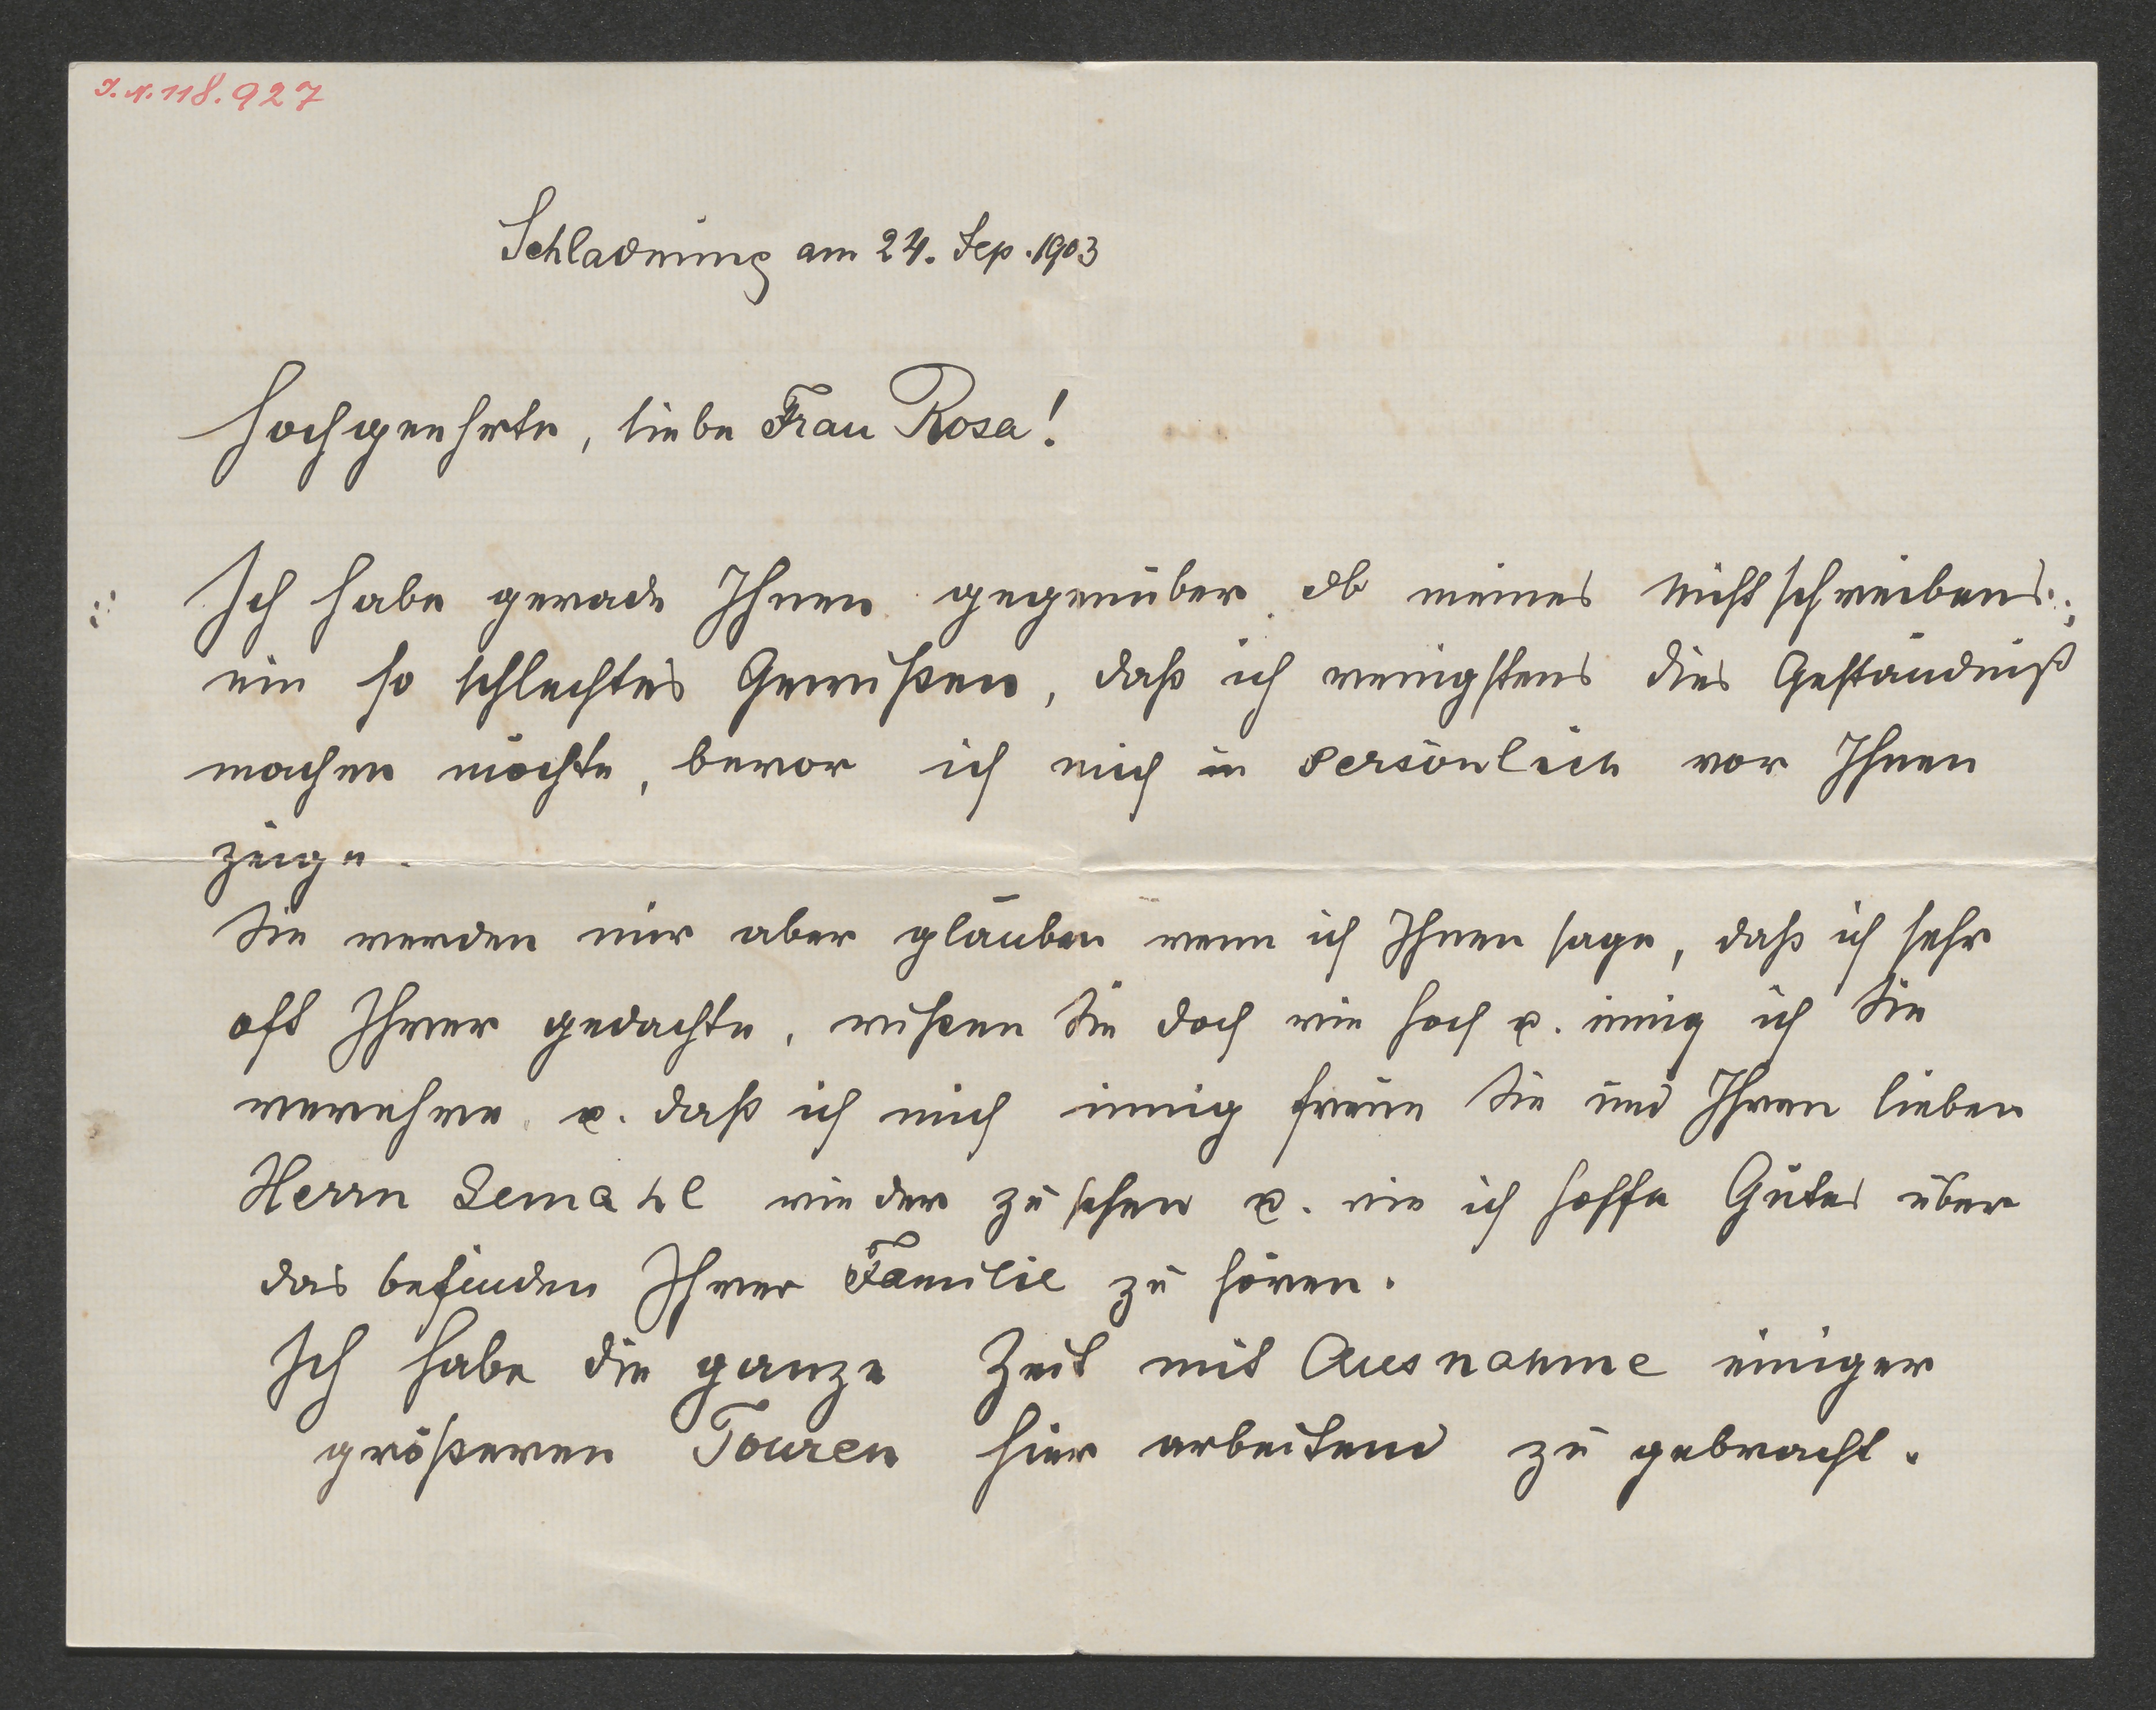 I. N. 118.927
Schladming am 24. Sep. 1903
Hochgeehrte, liebe Frau Rosa!
Ich habe gerade Ihnen gegenüber ob meines Nichtschreibens
ein so schlechtes Gewißen, daß ich wenigstens dies Geständniß
machen möchte, bevor ich mich in persönlich vor Ihnen
zeige.
Sie werden mir aber glauben wenn ich Ihnen sage, daß ich sehr
oft Ihrer gedachte, wißen Sie doch wie hoch u. innig ich Sie
verehre u. daß ich mich innig freue Sie und Ihren lieben
Herrn Gemahl wieder zu sehen u. wie ich hoffe Gutes über
das befinden Ihrer Familie zu hören.
Ich habe die ganze Zeit mit Ausnahme einiger
größeren Touren hier arbeitend zu gebracht.